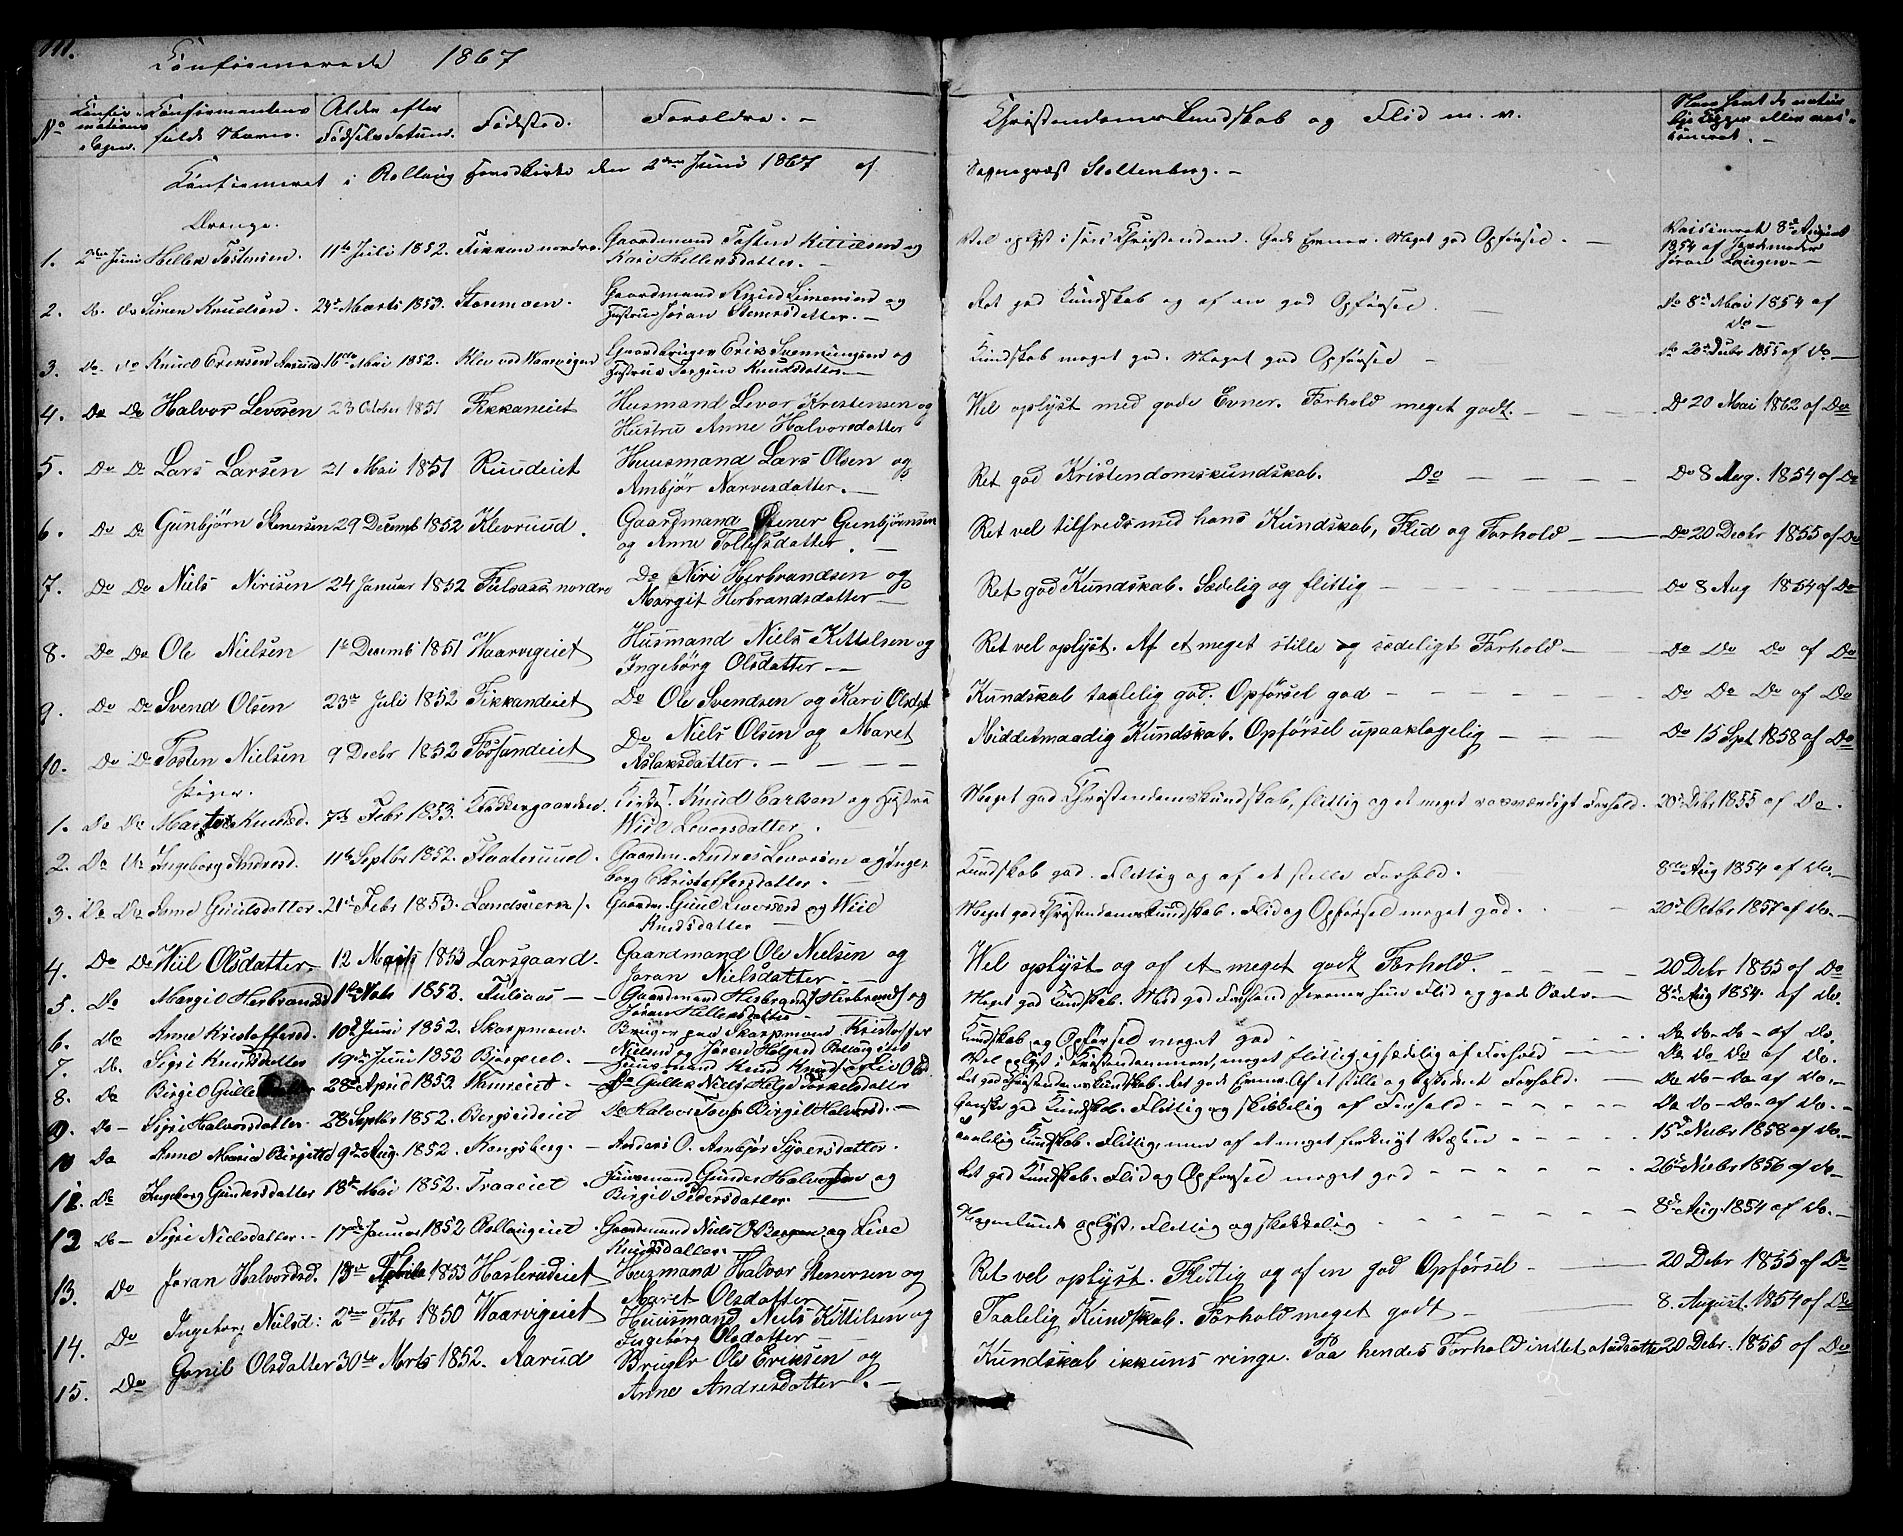 111.
Confirmerede 1867
No
Confirmations Dagen.
Confirmantens fulde Navn.
Alder efter Fødsels Datum.
Fødsted.
Forældre. -
Christendoms Kundskab og Flid m. v.
Naar havt de naturlige Kopper eller vaccineret. -
Confirmeret i Rollaug Hovedkirke den 2den Juni 1867 af Sognepræst Stoltenberg. -
Drenge.
1. 2den Juni Hellek Tostensen. 11te Juli 1852. Fikkan nordre. Gaardmand Tosten Kittilsen og Kari Helleksdatter. - Vel oplyst i sin Christendom. Gode Evner. Meget god Opførsel. - Vaccineret 8de August 1854 af Jordemoder Jøran Langen -
2. Do. do Simen Knudsen. 24de Marts 1853. Storemoen. Gaardmand Knud Simensen og Hustru Jøran Stenersdatter. - Ret god Kundskab og af en god Opførsel. - do 8de Mai 1854 af do -
3. do. do Knud Eriksen Aarud 16de Mai 1852. Klev ved Waarvigen Gaardbruger Erik Svennungsen og Hustru Jorgun Knudsdatter. - Kundskab meget god. Meget god Opførsel - do 20de Debr 1855 af do -
4. Do Do Halvor Levorsen 23 October 1851 Fikkaneiet Husmand Levor Kristensen og Hustru Anne Halvorsdatter Wel oplyst med gode Evner. Forhold meget godt. - - - Do 20 Mai 1862 af Do
5. Do Do Lars Larsen 21 Mai 1851 Ruudeiet Huusmand Lars Olsen og Ambjør Narvesdatter. - Ret god Kristendomskundskab. Do - - - Do 8 Aug. 1854 af Do
6. Do Do Gunbjørn Stenersen 29 Decemb 1852 Klevruud. Gaardmand Stener Gunbjørnsen og Anne Tollefsdatter. - Ret vel tilfreds med hans Kundskab, Flid og Forhold - - Do 20 Decbr 1855 af Do
7. Do Do Niels Nirisen 24 Januar 1852 Fulsaas nordre Do Niri Herbrandsen og Margit Herbrandsdatter - Ret god Kundskab. Sædelig og flittig - - - Do 8 Aug 1854 af Do
8. Do Do Ole Nielsen 1te Decemb 1851 Waarvigeiet Husmand Niels Kittelsen og Ingebørg Olsdatter - - Ret vel oplyst. Af et meget stille og sædeligt Forhold - - Do Do Do af Do
9. Do Do Svend Olsen 23de Juli 1852 Fikkandeiet Do Ole Svendsen og Kari Olsdat Kundskab taalelig god. Opførsel god - - - Do Do Do af Do
10. Do Do Tosten Nielsen 9 Decbr 1852 Fossandeiet Do Niels Olsen og Maret Aslaksdatter. - - - Middelmaadig Kundskab. Opførsel upaaklagelig - - - Do 15 Sept 1858 af Do
Piger.
1. Do Do Knudsd. 7de Febr 1853. Klokkergaarden. Kirkes. Knud Carlsen og Hustru Wiil Leversdatter. Meget god Christendomskundskab, flittig og et meget rosværdigt Forhold. 20de Debr 1855 af Do.
2. Do Do Ingeborg Andresd. 11te Septbr 1852. Flaateruud. Gaardm. Andres Levorsen og Ingeborg Christoffersdatter. Kundskab god. Flittig og af et stille Forhold. 8de Aug 1854 af Do. -
3. Do Do Anne Guulsdatter. 21de Febr 1853. Landsverk /. Gaardm. Guul Levorsen og Wiil Knudsdatter - Meget god Christendomskundskab. Flid og Opførsel meget god. - - 20de Octbr 1857 af do. -
4. Do Do Wiil Olsdatter, 12 Marts 1853 Larsgaard. Gaardmand Ole Nielsen og Jøran Nielsdatter - - Wel oplyst og af et meget godt Forhold. - - - 20 Debr 1855 af Do
5. Do Margit Herbrandsd 1ste Novb 1852. Fulsaas - - Gaardmand Herbrand Herbrands og Jøran Hellersdatter - Meget god Kundskab. Med god Forstand forener hun Flid og gode Sæder. - 8de Aug 1854. af do.
6. do Anne Kristoffersd. 10de Juni 1852. Skarpmoen. Bruger paa Skarpmoen Kristoffer Nielsen og Jøren Helgesd Rollaugeiet Kundskab og Opførsel meget god - do do - do - af do.
7. do. Sigri Knudsdatter 19de Juni 1852 Bjørgeiet. - Huusmand Knud Knudsen og Liv Olsd. Vel oplyst i Kristendommen, meget flittig og sædelig af Forhold - do do do af do. -
8. do Birgit Gulleksdatter 28de April 1852 - Do Gullek Niels Helge Torkelsdatter Ret god Christendomskundskab. Ret gode Evner. Af et stille og beskedent Forhold. - Do do - do. af do. -
9. do - Sigri Halvorsdatter. 28 Septbr 1852. Bergseideiet Do Halvor Birgit Halvorsd. - Ganske god Kundskab. Flittig og skikkelig af Forhold - - - do do - do. af do. -
10 Do Anne Maria Birgitte 9de Aug. 1852. Kongsberg. - Anders O. Ambjør Syversdatter. Taalelig Kundskab. Flittig, men af et meget forknyt Væsen - - - 15de Novbr 1858 af do. -
11. do Ingeborg Gundersdatter 18de Mai 1852. Traaeiet. Huusmand Gunder Halvorsen og Birgit Pedersdatter. - Ret god Kundskab. Flid og Opførsel meget god - - - 26de Novbr 1856 af do -
12 do - Sigri Nielsdatter. - 17de Januar 1852 Rollaugeiet. Gaardmand Niels O Bergan og Live Knudsdatter. - oplyst, Flittig og skikkelig - - - 8de Aug 1854 af do. -
13. Do Jøran Halvorsd. 13de Aprile 1853 Haslerudeiet Huzmand Halvor Stenersen og Maret Olsdatter Ret vel oplyst. Flittig og af en god Opførsel - - 20 Debr 1855 af Do
14. Do Ingeborg Nielsd: 2den Febr 1850 Waarvigeiet Huusmand Niels Kittilsen og Ingebørg Olsdatter - - Taalelig Kundskab. Forhold meget godt - - 8. August. 1854 af Do
15. Do Gonil Olsdatter 30te Marts 1852. Aarud Bruger Ole Eriksen og Anne Andresdatter. - Kundskab ikkuns ringe. Paa hendes Forhold intet at udsætte 20 Debr. 1855 af Do